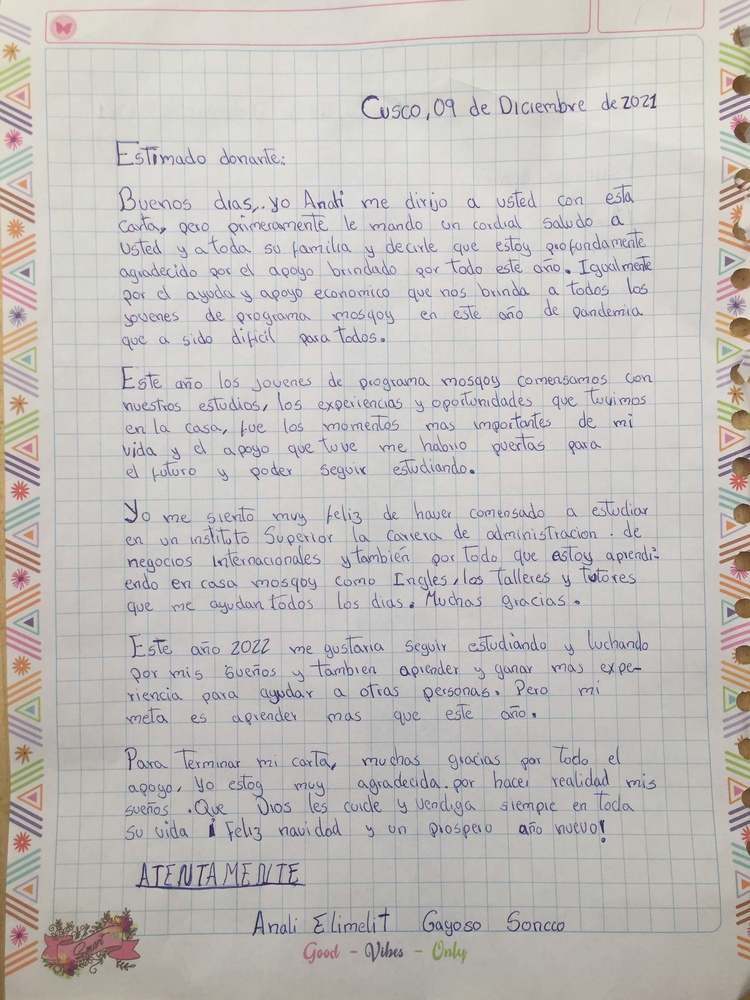 Cusco, 09 de Diciembre de 2021
Estimado donante:
Buenos dias, yo Anali me dirijo a usted con esta
carta, pero primeramente le mando un cordial saludo a
usted y a toda su familia y decirle que estoy profundamente
agradecido por el apoyo brindado por todo este año. Igualmente
por el ayuda y apoyo economico que nos brinda a todos los
jovenes de programa mosqoy en este año de pandemia
que a sido dificil para todos.
Este año los jovenes de programa mosqoy comensamos con
nuestros estudios, los experiencias y oportunidades que tuvimos
en la casa, fue los momentos mas importantes de mi
vida y el apoyo que tuve me habrio puertas para
el futuro y poder seguir estudiando.
Yo me siento muy feliz de haver comensado a estudiar
en un instituto Superior la carrera de administracion . de
negocios Internacionales y también por todo que estoy aprendi-
endo en casa mosqoy como Ingles, los Talleres y tutores
que me ayudan todos los dias. Muchas gracias.
Este año 2022 me gustaria seguir estudiando y luchando
por mis sueños y tambien aprender y ganar mas expe-
riencia para ayudar a otras personas. Pero mi
meta es aprender mas que este año.
Para terminar mi carta, muchas gracias por todo el
apoyo, yo estoy muy agradecida. por hacer realidad mis
sueños. Que Dios les cuide y vendiga siempre en toda
su vida ¡ Feliz navidad y un prospero año nuevo!
ATENTAMENTE
Anali Elimelit Gayoso Soncco
Good - Vibes - Only